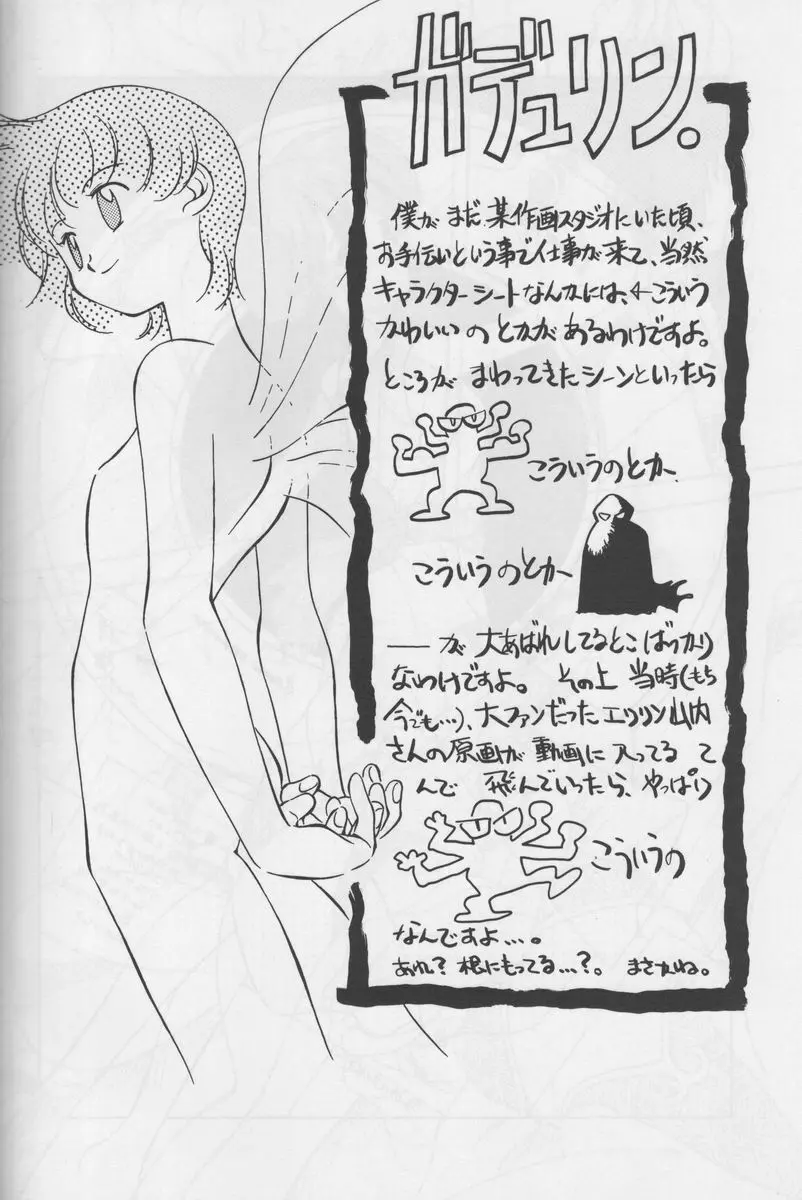 ガデュリン。
僕が まだ、某作画スタジオにいた頃、
お手伝いという事で仕事が来て、当然
キャラクターシートなんかには、←こういう
かわいい の とかが あるわけですよ。
ところが まわってきたシーンといったら
こういうのとか、
こういうのとか
── が 大あばれしてるとこばっかり
なわけですよ。 その上 当時(もち
今でも…)、大ファンだった エツリン山内
さんの原画が 動画に入ってる って
んで 飛んでいったら、やっぱり
こういうの
なんですよ…。
あれ? 根にもってる…?。 まさかね。